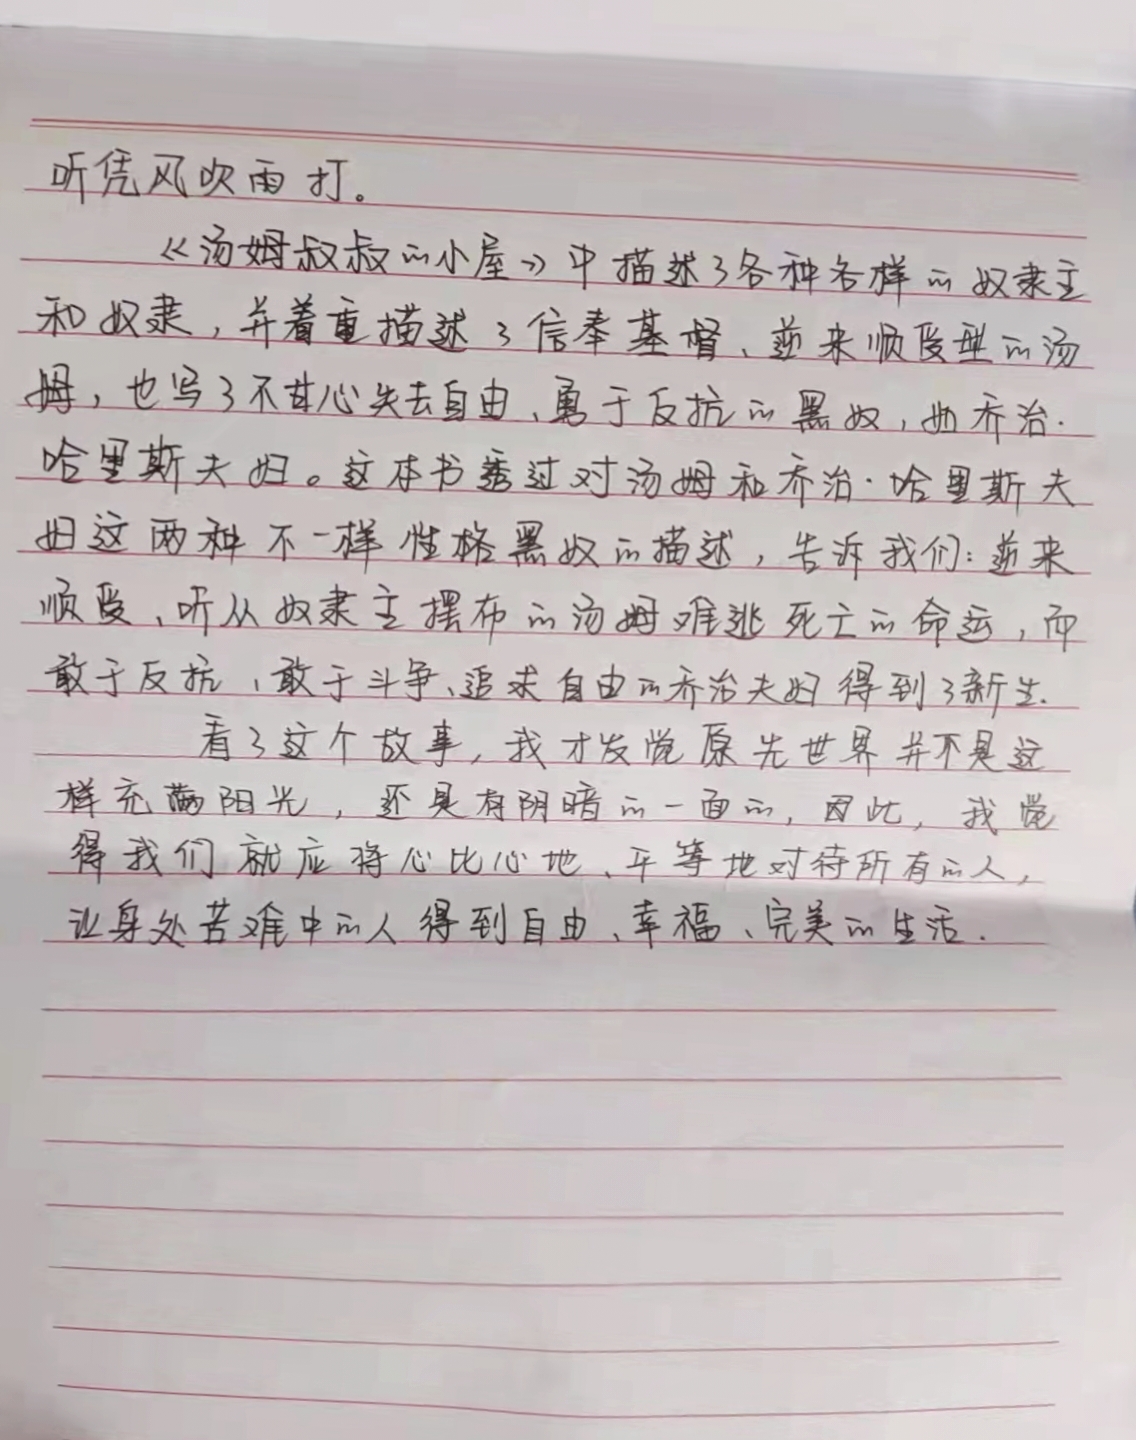 听凭风吹雨打。
《汤姆叔叔的小屋》中描述了各种各样的奴隶主
和奴隶，并着重描述了信奉基督、逆来顺受型的汤
姆，也写了不甘心失去自由、勇于反抗的黑奴，如乔治·
哈里斯夫妇。这本书透过对汤姆和乔治·哈里斯夫
妇这两种不一样性格黑奴的描述，告诉我们：逆来
顺受、听从奴隶主摆布的汤姆难逃死亡的命运，而
敢于反抗、敢于斗争、追求自由的乔治夫妇得到了新生.
看了这个故事，我才发觉原先世界并不是这
样充满阳光，还是有阴暗的一面的，因此，我觉
得我们就应将心比心地、平等地对待所有的人，
让身处苦难中的人得到自由、幸福、完美的生活.